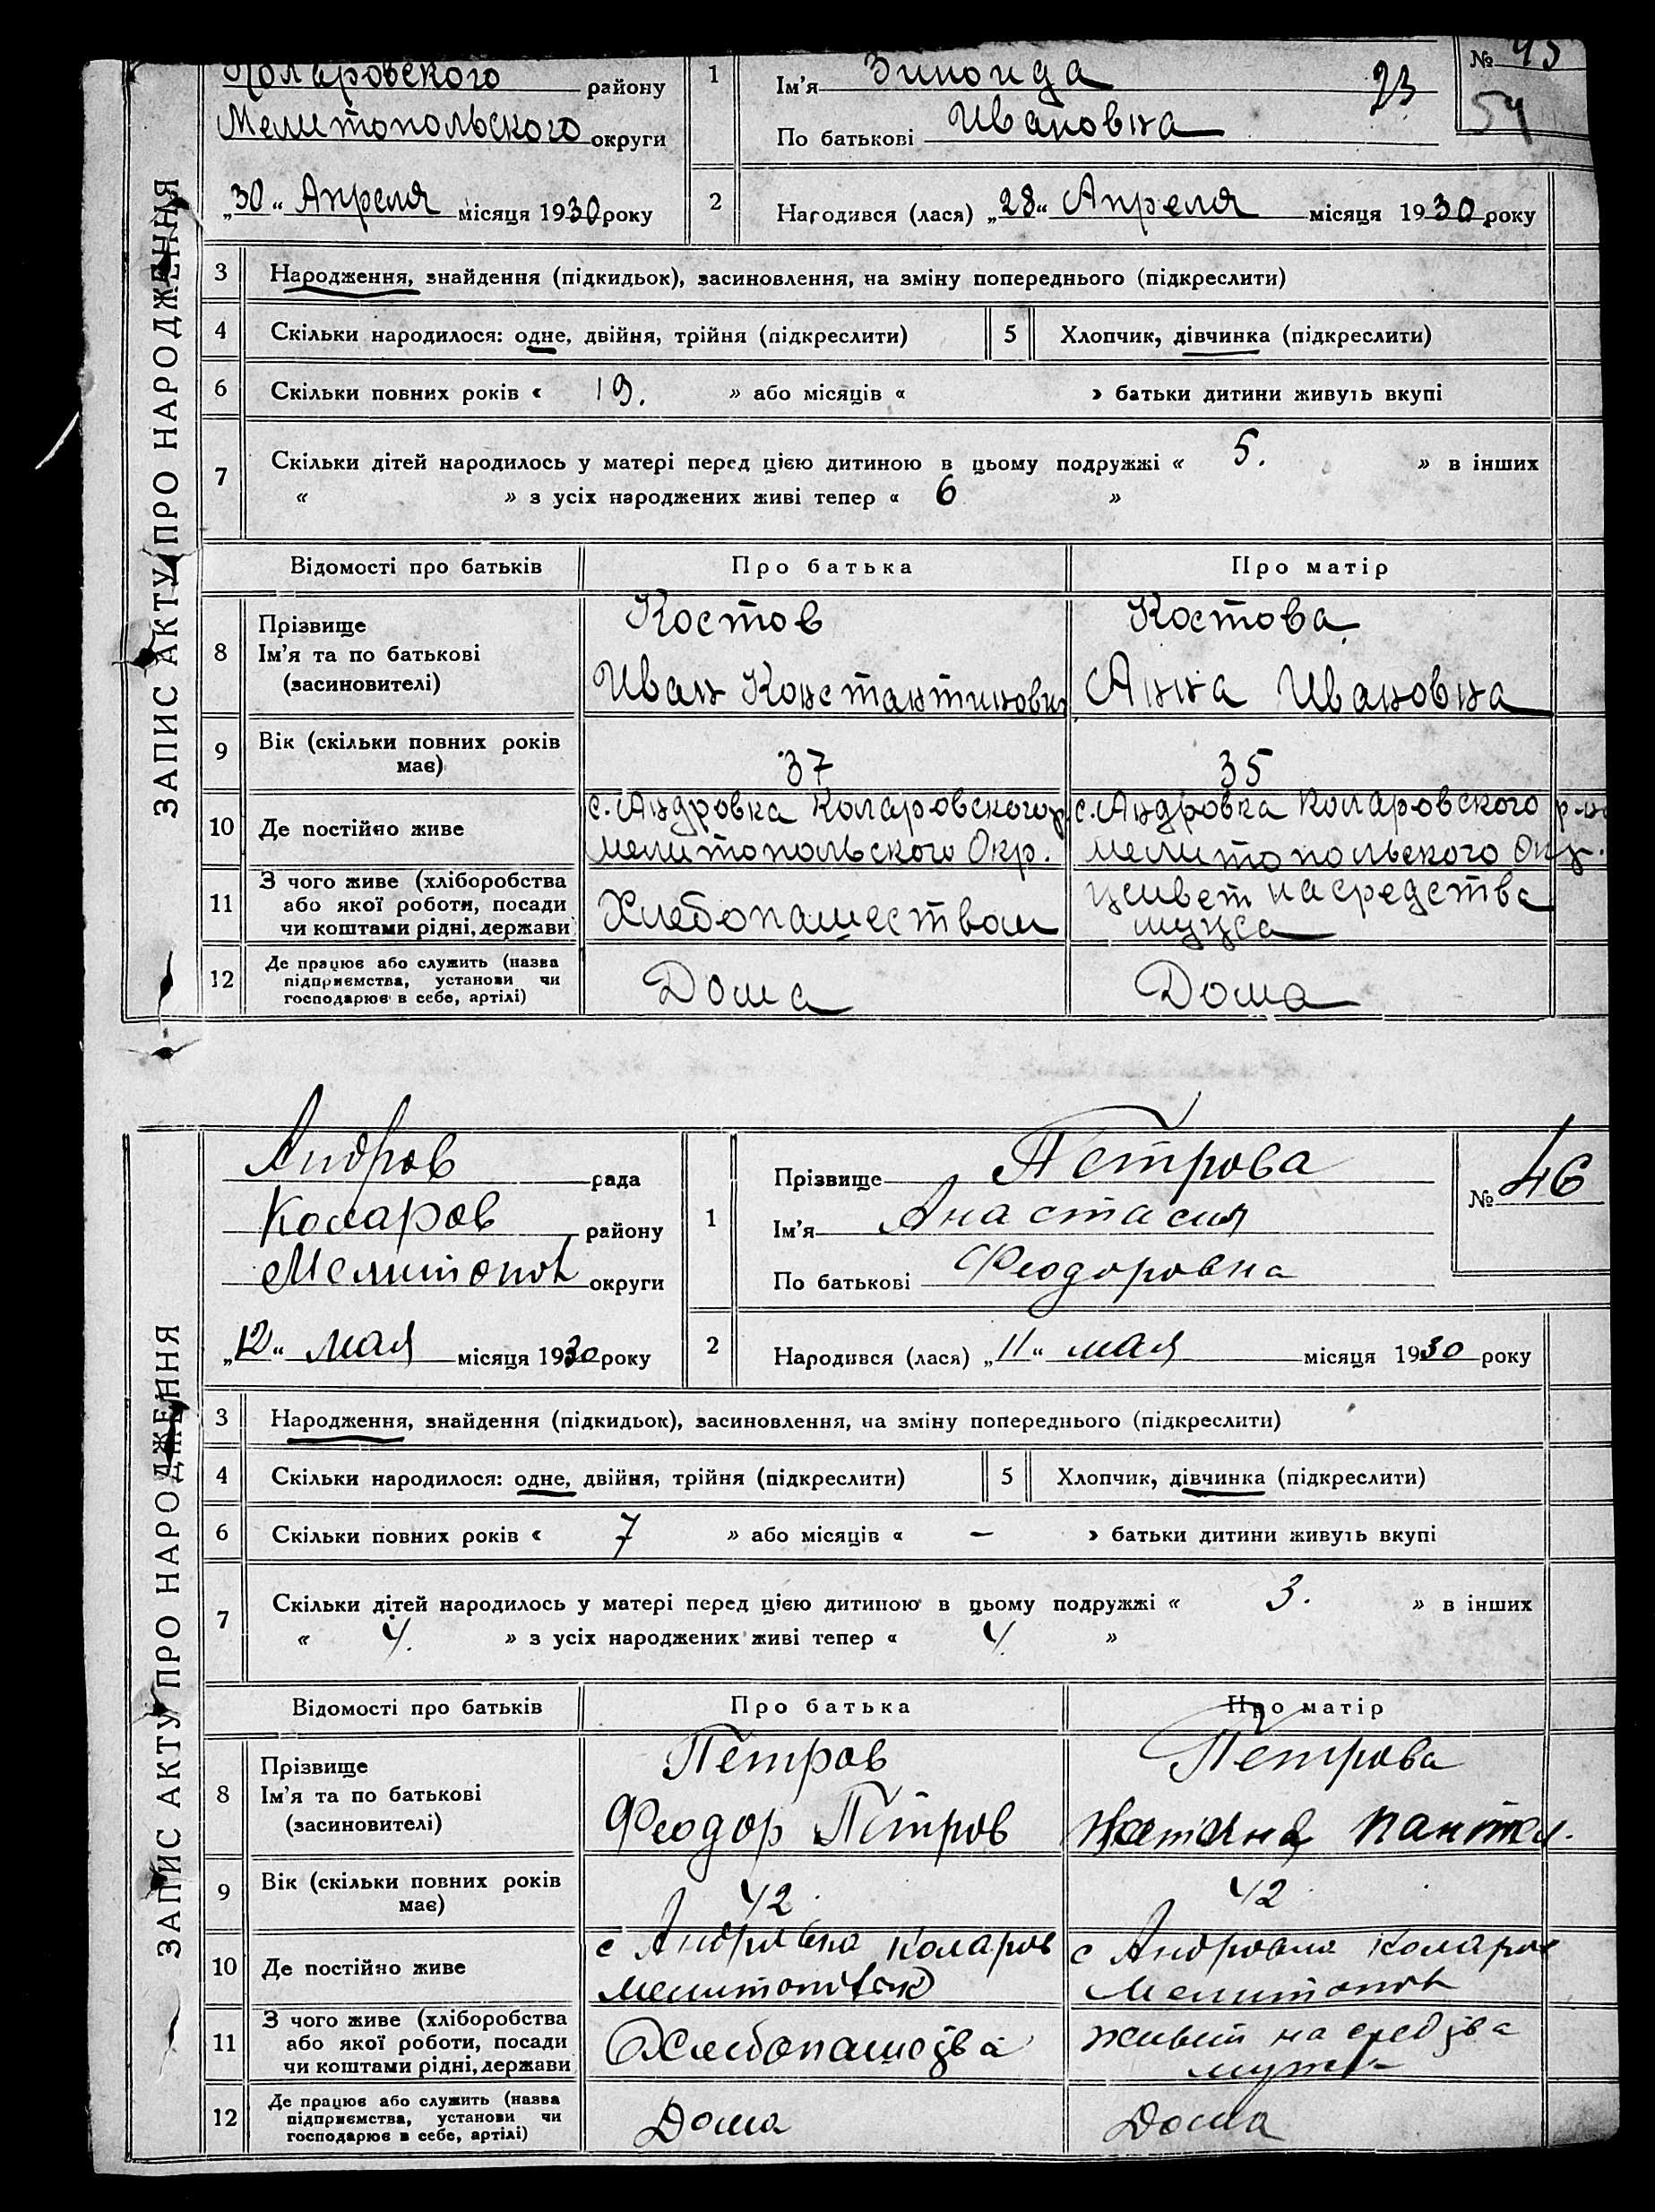 Коларовского району
Мелитопольского округи
„30“ Апреля місяця 1930 року
1
Ім'я Зиноида 23
По батькові Ивановна
№ 45
54
2 Народився (лася) „28“ Апреля місяця 1930 року
ЗАПИС АКТУ ПРО НАРОДЖЕННЯ
3 Народження, знайдення (підкидьок), засиновлення, на зміну попереднього (підкреслити)
4 Скільки народилося: одне, двійня, трійня (підкреслити) 5 Хлопчик, дівчинка (підкреслити)
6 Скільки повних років « 19. » або місяців « » батьки дитини живуть вкупі
7 Скільки дітей народилось у матері перед цією дитиною в цьому подружжі « 5. » в інших
« » з усіх народжених живі тепер « 6 »
Відомості про батьків Про батька Про матір
8 Прізвище Костов Костова
Ім'я та по батькові
(засиновителі) Иван Константинович Анна Ивановна
9 Вік (скільки повних років
має) 37 35
10 Де постійно живе с. Андровка Коларовского р с. Андровка Коларовского р-на
Мелитопольского Окр. Мелитопольского Окр.
11 З чого живе (хліборобства
або якої роботи, посади
чи коштами рідні, держави Хлебопашеством живет на средства
мужа
12 Де працює або служить (назва
підприємства, установи чи
господарює в себе, артілі) Дома Дома
Андров рада
Коларов району
Мелитопол округи
„12“ мая місяця 1930 року
1
Прізвище Петрова
Ім'я Анастасия
По батькові Феодоровна
№ 46
2 Народився (лася) „11“ мая місяця 1930 року
ЗАПИС АКТУ ПРО НАРОДЖЕННЯ
3 Народження, знайдення (підкидьок), засиновлення, на зміну попереднього (підкреслити)
4 Скільки народилося: одне, двійня, трійня (підкреслити) 5 Хлопчик, дівчинка (підкреслити)
6 Скільки повних років « 7 » або місяців « — » батьки дитини живуть вкупі
7 Скільки дітей народилось у матері перед цією дитиною в цьому подружжі « 3. » в інших
« 4. » з усіх народжених живі тепер « 4 »
Відомості про батьків Про батька Про матір
8 Прізвище Петров Петрова
Ім'я та по батькові
(засиновителі) Феодор Петров Пантел.
9 Вік (скільки повних років
має) 42 42
10 Де постійно живе с Андровка Коларов с Андровка Коларов
Мелитопол
11 З чого живе (хліборобства
або якої роботи, посади
чи коштами рідні, держави Хлебопашества живет на средства
мужа
12 Де працює або служить (назва
підприємства, установи чи
господарює в себе, артілі) Дома Дома